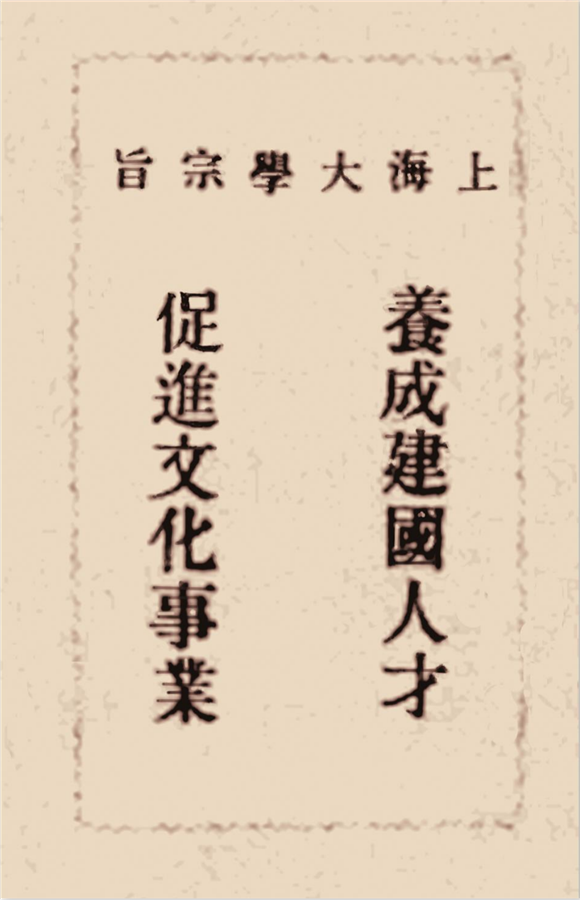 上海大學宗旨
養成建國人才
促進文化事業